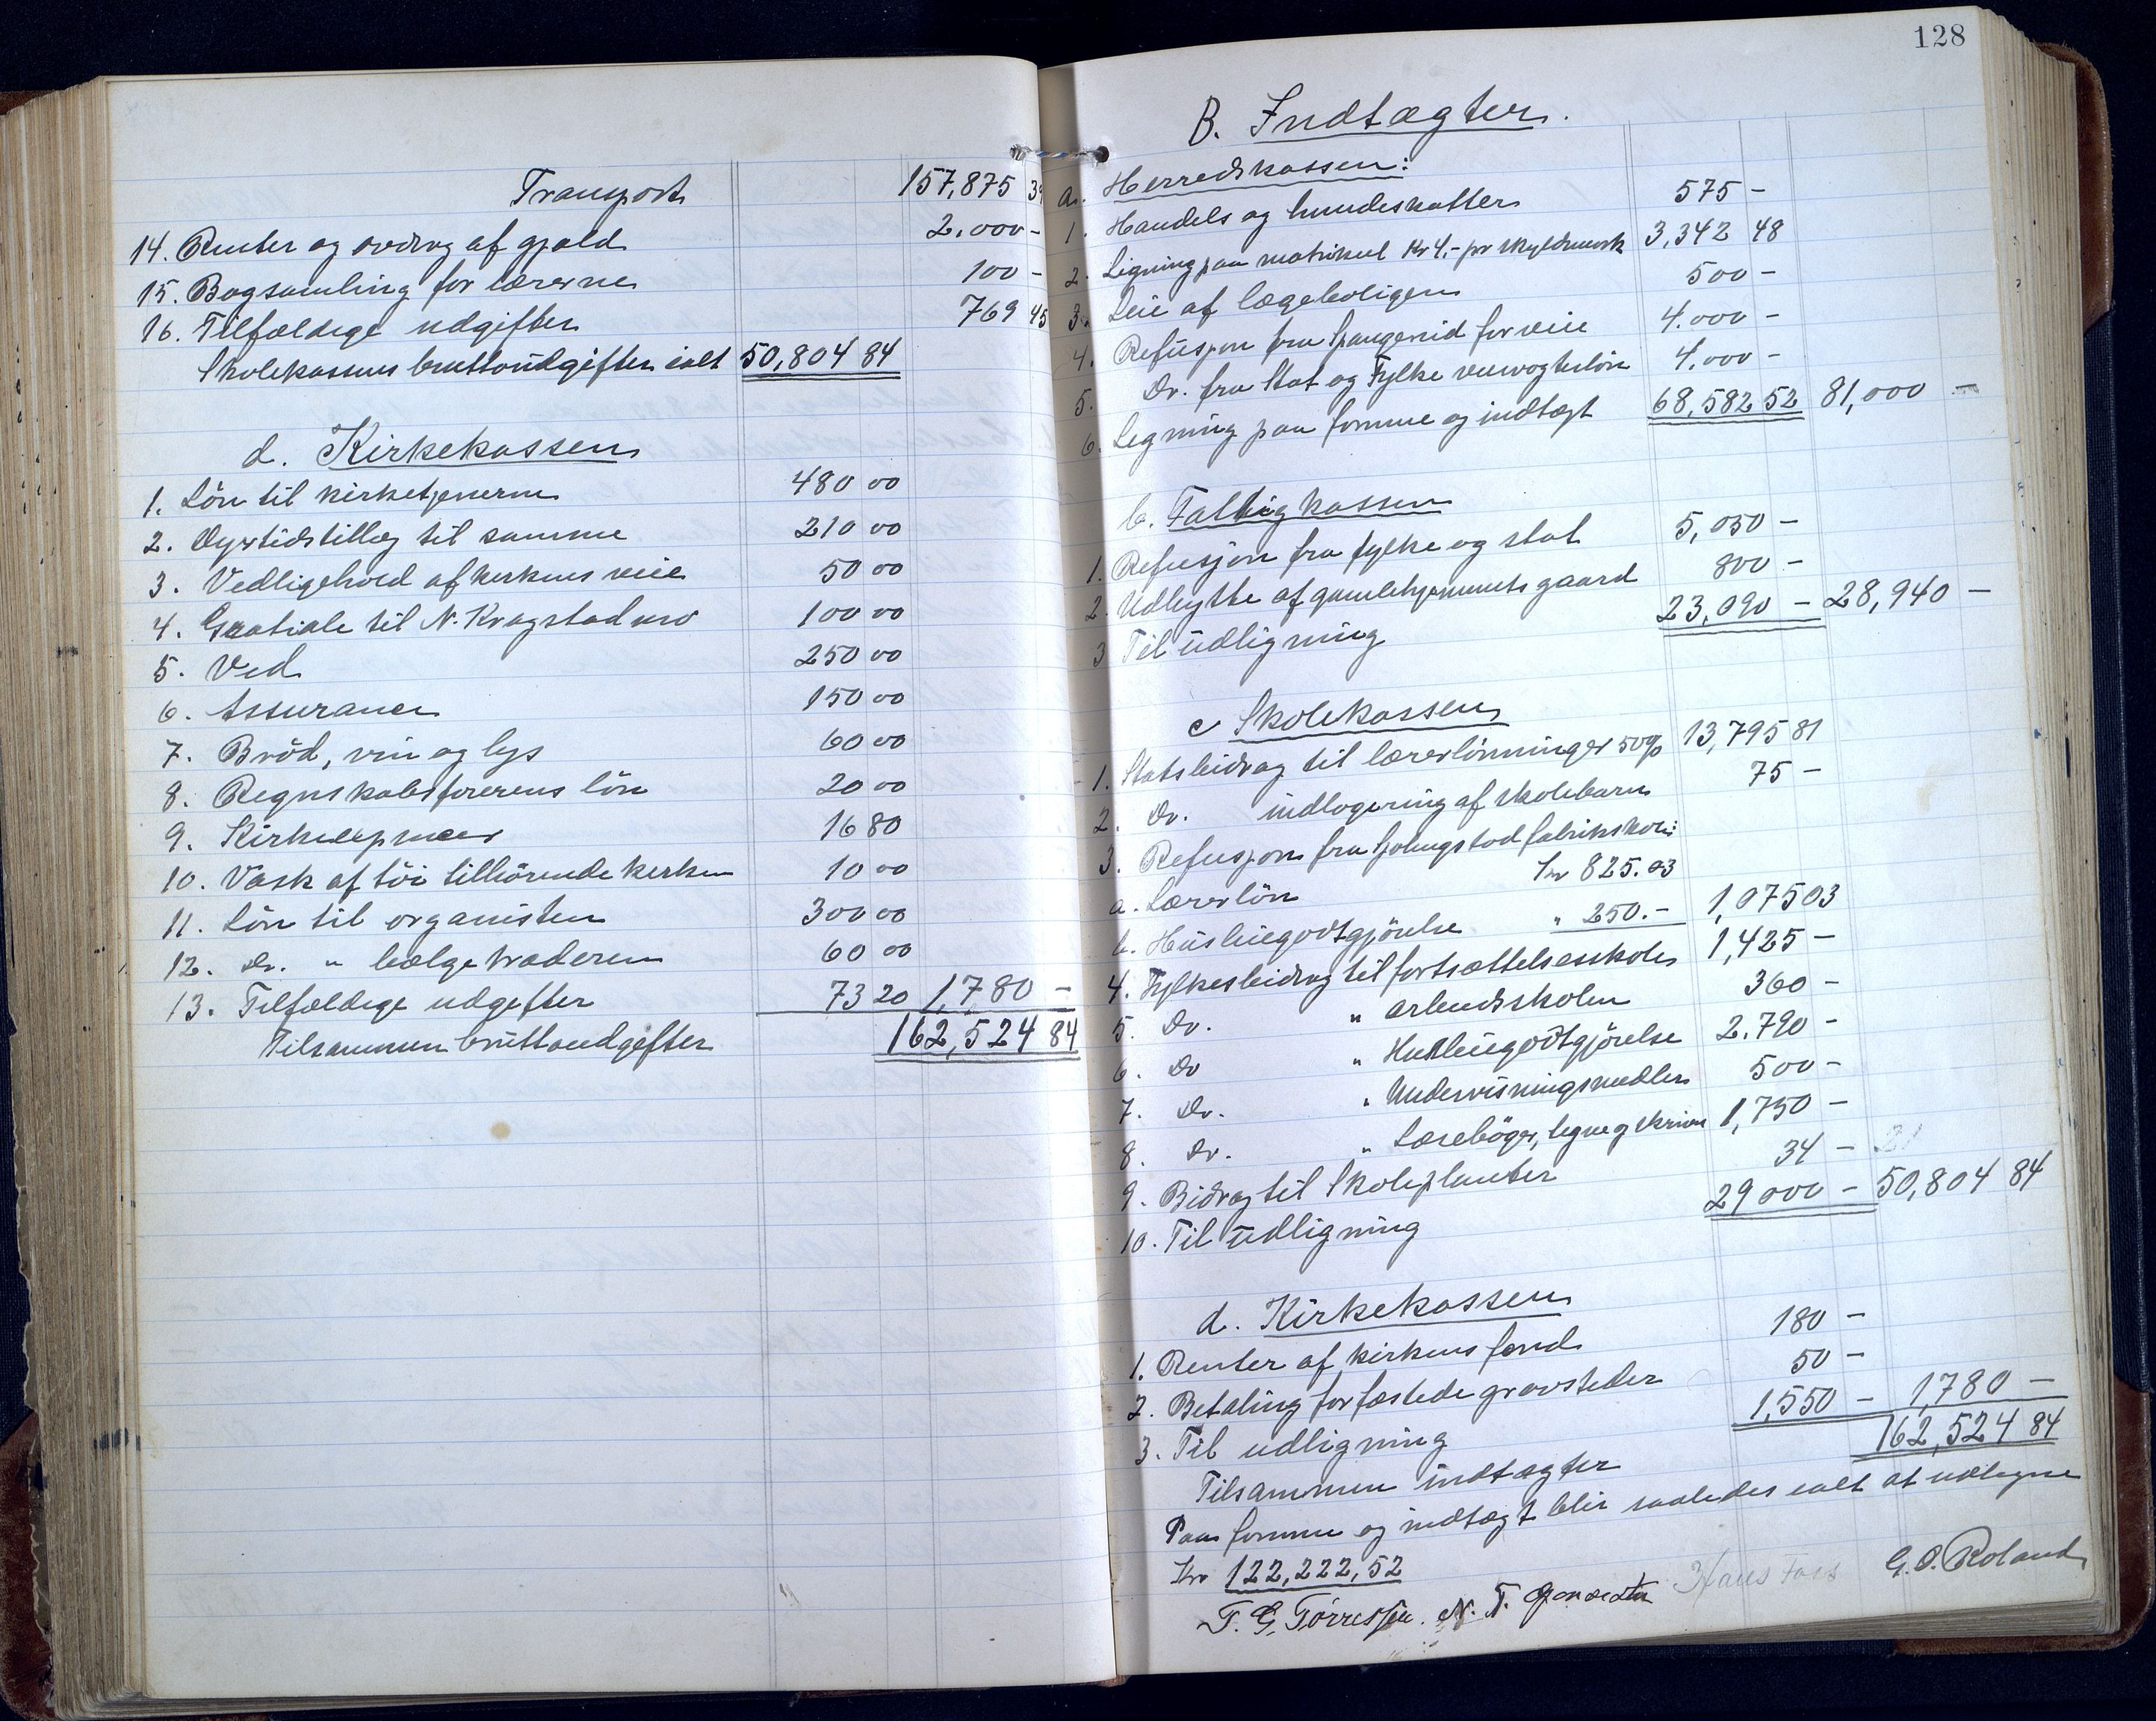 Transport 157,875 39
14. Renter og avdrag af gjæld 2.000 -
15. Bogsamling for lærerne 100 -
16. Tilfældige udgifter 769 45
Skolekassens bruttoudgifter ialt 50,804 84
d. Kirkekassen
1. Løn til kirketjenerne 480 00
2. Dyrtidstillæg til samme 210 00
3. Vedligehold af kirkens veie 50 00
4. Gratiale til N. Kragstad 100 00
5. Ved 250 00
6. Assurance 150 00
7. Brød, vin og lys 60 00
8. Regnskabsførerens løn 20 00
9. 16 80
10. Vask af tøi tilhørende kirken 10 00
11. Løn til organisten 300 00
12. Do. " bælgetræderen 60 00
13. Tilfældige udgifter 73 20 1,780 -
Tilsammen bruttoudgifter 162,524 84
128
B. Indtægter.
a. Herredskassen:
1. Handels og hundeskatter 575 -
2. Ligning paa matrikul Kr 4.- pr skyldmark 3,342 48
3. Leie af lægeboligen 500 -
4. Refusjon fra Spangereid for veie 4.000 -
5. Do. fra Stat og Fylke veivogterløn 4.000 -
6. Ligning paa formue og indtægt 68,582 52 81,000 -
b. Fattigkassen
1. Refusjon fra fylke og stat 5,050 -
2. Udbytte af gamlehjemmets gaard 800 -
3 Til udligning 23,090 - 28,940 -
c Skolekassen
1. Statsbidrag til lærerlønninger 50% 13,795 81
2. Do. indlogering af skolebarn 75 -
3. Refusjon fra fabrikskole:
a. Lærerløn Kr 825.03
b. Husleiegodtgjørelse " 250.- 1,075 03
4. Fylkesbidrag til fortsættelsesskole 1,425 -
5. Do. " arbeidsskolen 360 -
6. Do " Husleiegodtgjørelse 2.790 -
7. Do. " Undervisningsmidler 500 -
8. Do. " Læsebøger, tegne og skrive 1,750 -
9. Bidrag til Skoleplanter 34 -
10. Til udligning 29 000 - 50,804 84
d. Kirkekassen
1. Renter af kirkens fond 180 -
2. Betaling for fæstede gravsteder 50 -
3. Til udligning 1,550 - 1,780 -
Tilsammen indtægter 162,524 84
Paa formue og indtægt blir saaledes ialt at udligne
Kr 122,222,52
T. G. Tørressen. N. T. Hans Foss G. O. Roland